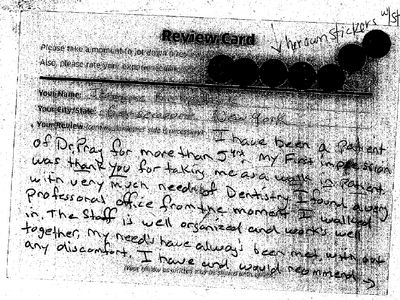 her own stickers w/st
Review Card
Please take a moment to jot down
Also, please rate your experience
Your Name:
Your City/State: New York
Your Review I have been a patient
of Dr Pray for more than 5 yrs. my First impression
was thank you for taking me as a walk in patient
with very much needed Dentistry. I found a very
professional office from the moment I walked
in. The Staff is well organized and works well
together. My needs have always been met without
any discomfort. I have and would recommend →